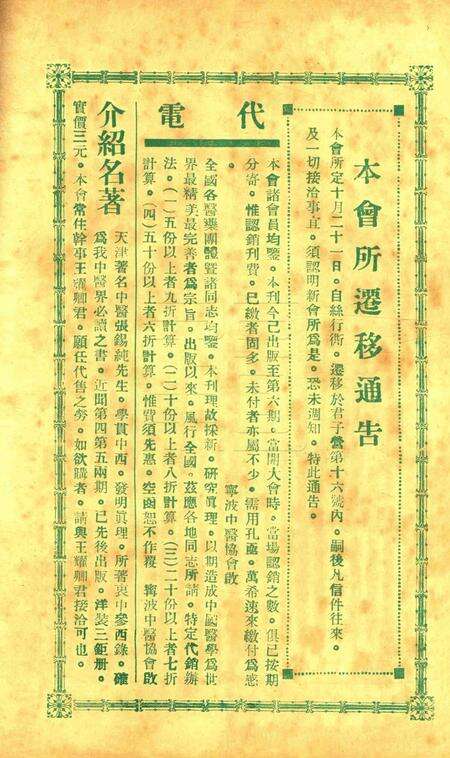 本會所遷移通告
本會所定十月二十一日。自絲行衖。遷移於君子營第十六號內。嗣後凡信件往來。
及一切接洽事宜。須認明新會所爲是。恐未週知。特此通告。
代電
本會諸會員均鑒。本刊今已出版至第六期。當開大會時。當場認銷之數。俱已按期
分寄。惟認銷刊費。已繳者固多。未付者亦屬不少。需用孔亟。萬希速來繳付爲感
。
寧波中醫協會啟
全國各醫藥團體暨諸同志均鑒。本刊理故採新。研究眞理。以期造成中國醫學爲世
界最精美最完善者爲宗旨。出版以來。風行全國。茲應各地同志所請。特定代銷辦
法。(一)五份以上者九折計算。(二)十份以上者八折計算。(三)二十份以上者七折
計算。(四)五十份以上者六折計算。惟費須先惠。空函恕不作覆。寧波中醫協會啟
介紹名著
天津著名中醫張錫純先生。學貫中西。發明眞理。所著衷中參西錄。確
爲我中醫界必讀之書。近聞第四第五兩期。已先後出版。洋裝三鉅册。
實價三元。本會常住幹事王耀卿君。願任代售之勞。如欲購者。請與王耀卿君接洽可也。